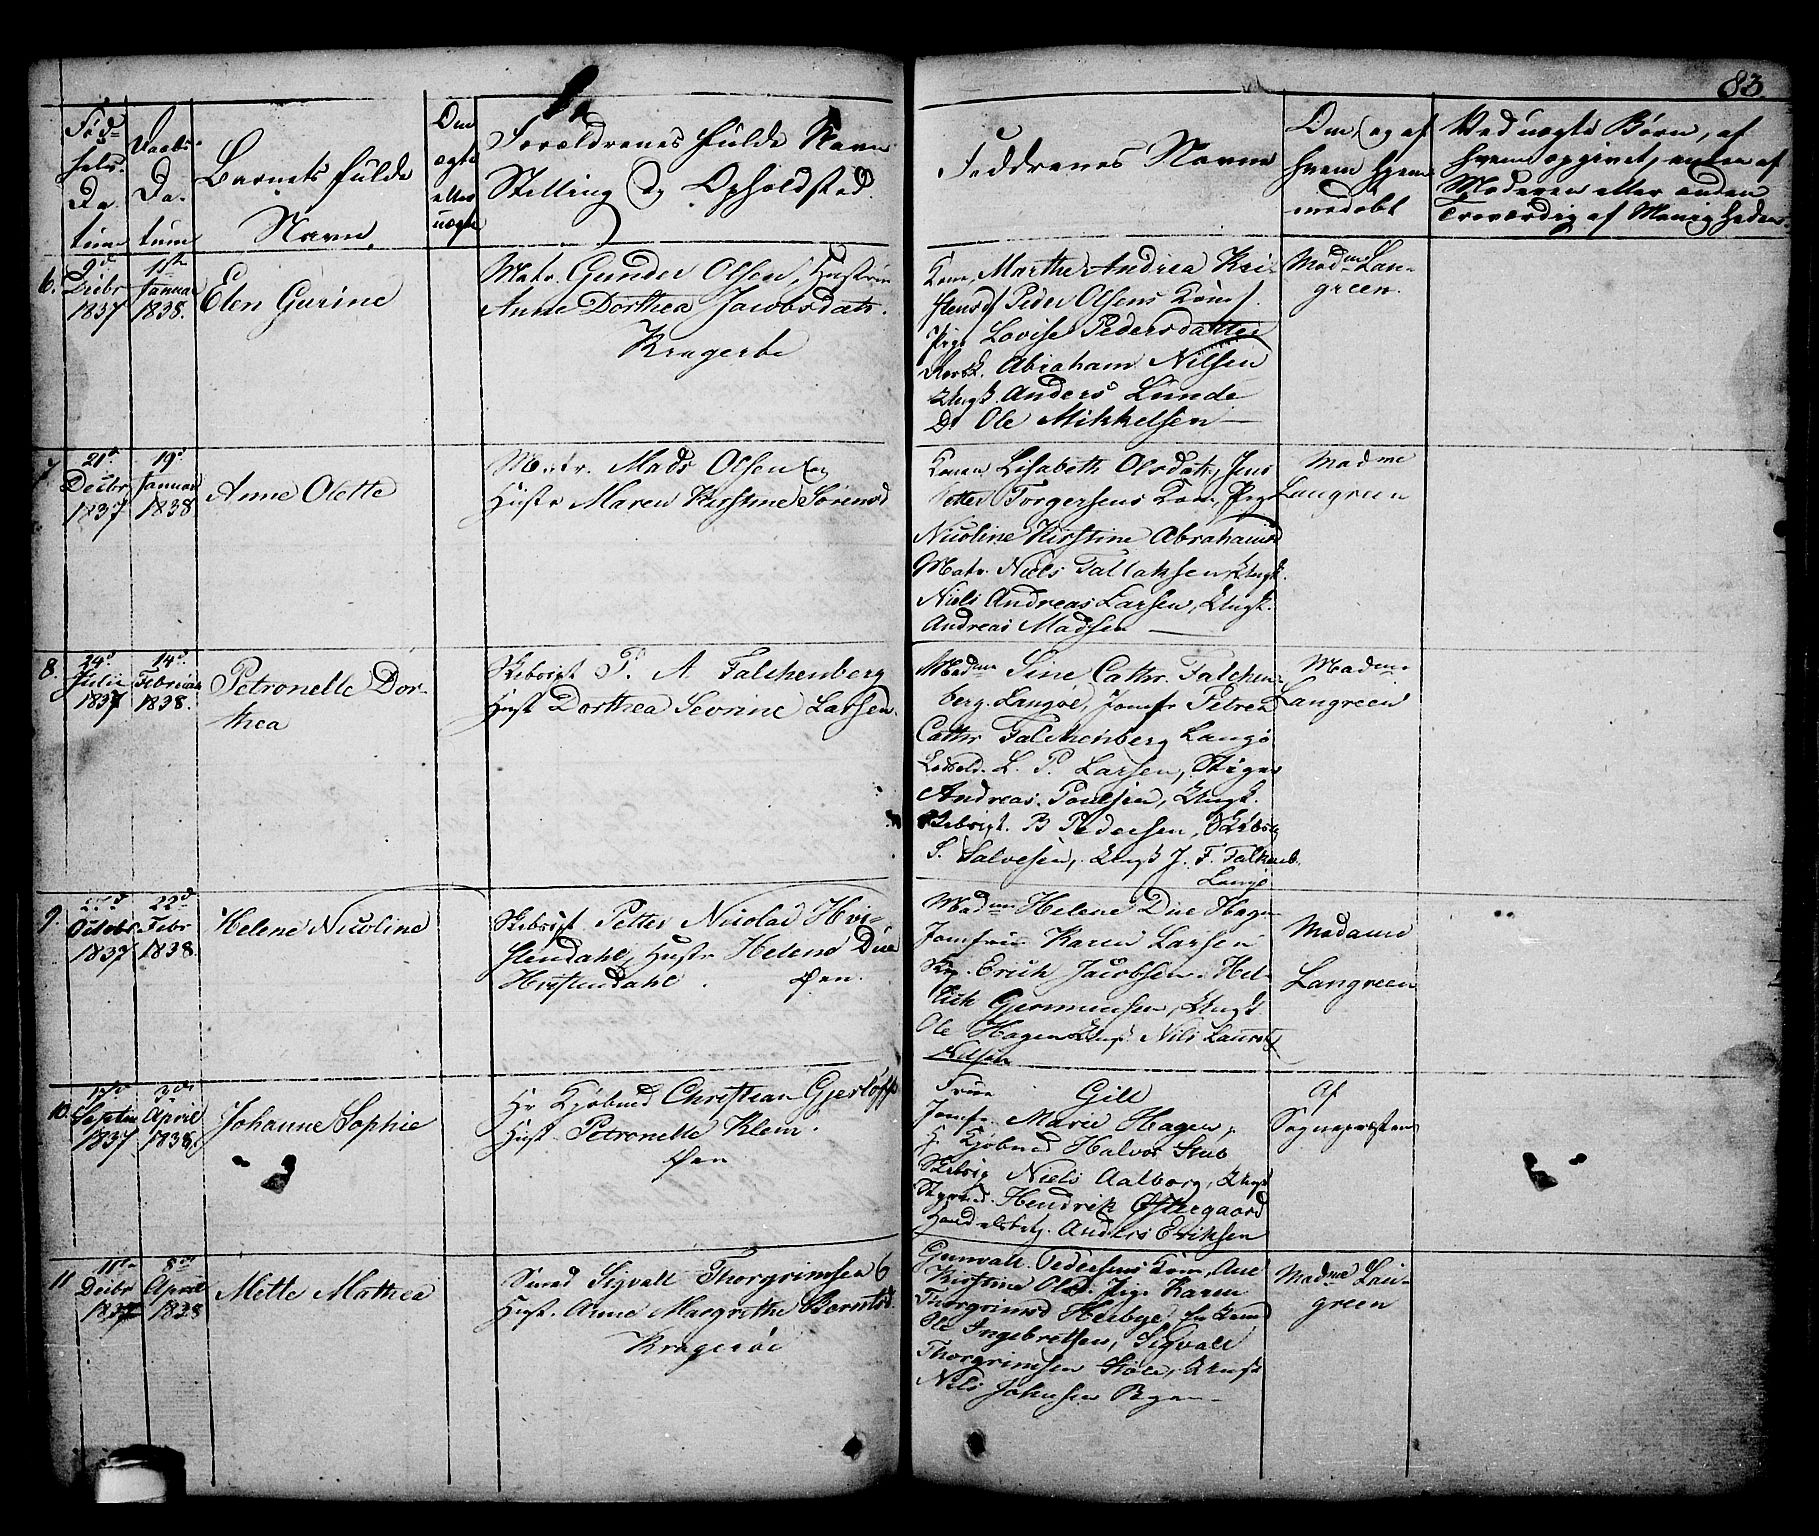 83.
Fød-
sels
Da-
tum
Daabs-
Da-
tum
Barnets fulde
Navn
Om
ægte
eller
uægte
Forældrenes fulde Navn
Stilling og Opholdsted
Faddrenes Navne
Om og af
hvem hjem-
medøbt
Ved uægte Børn, af
hvem opgivet, enten af
Moderen eller anden
Troværdig af Menigheden
6.
9d
Decbr
1837
Januar
1838.
Elen Gurine
Matr. Gunder Olsen, Hustrue
Anne Dorthea Jacobsdatr.
Kragerøe
Kone, Marthe Andrea Kri-
stensd Peder Olsens Kone.
Pige Lovise Pedersdatter
Abraham Nilsen
Ungk. Anders Lunde
Do Ole Mikkelsen
Madme Lan-
green.
7
21d
Decbr
1837
19d
Januar
1838
Anne Olette
Matr. Mads Olsen og
Hustr Maren Kirstine Sörensd
Konen Lisabeth Olsdatr, Jens
Petter Torgersens Kone, Pige
Nicoline Kirstine Abrahamsd
Matr. Niels Tallaksen, Ungk.
Niels Andreas Larsen, Ungk.
Andreas Madsen
Madme
Langreen
8.
24d
Julii
1837
14d
Februar
1838.
Petronelle Dor-
thea
Skibsrigt P. A Falchenberg
Hust Dorthea Sevrine Larsen.
Madme Sine Cathr. Falchen-
berg. Langöe, Jomfr Petrea
Cathr Falchenberg Langö
L. P. Larsen,
Andreas Poulsen, Ungk.
Skibsrigt. B Pedersen, Skibsr
S. Salvesen, Ungk J. F. Falkenb.
Langö
Madme
Langreen
9.
Octobr
1837
22d
Febr
1838.
Helene Nicoline
Skibsrigt Petter Nicolai Hvi-
stendahl, Hustr Helene Due
Hvistendahl. Øen.
Madme Helene Due Hagen
Jomfrue Karen Larsen
Erich Jacobsen. Hel-
lich Gjermunsen, Ungk.
Ole Hagen Ungk Nils Laurets
Nilsen
Madame
Langreen
10.
Septbr
1837
3die
April
1838.
Johanne Sophie
Hr Kjöbmd Christian Gjerloff
Hust. Petronelle Klem.
Øen
Frue Gill
Jomfr. Marie Hagen,
Hr Kjöbmd Halvor Stub
Skibsrig Niels Aalborg, Ungk
Hendrik Østergaard
Handelsbetj. Anders Eriksen
Af
Sognepresten
11
11te
Decbr
1837
8de
April
1838
Mette Mathea
Smed Sigvalt Thorgrimsen
Hust. Anne Margrethe Berntsd
Kragerøe
Gunvalt Pedersens Kone, Ane
Kirstine Olsd. Pige Karen
Thorgrimsd Heibye,
Ole Ingebretsen, Sigvalt
Thorgrimsen Ungk
Nils Johnsen
Madme Lan-
green